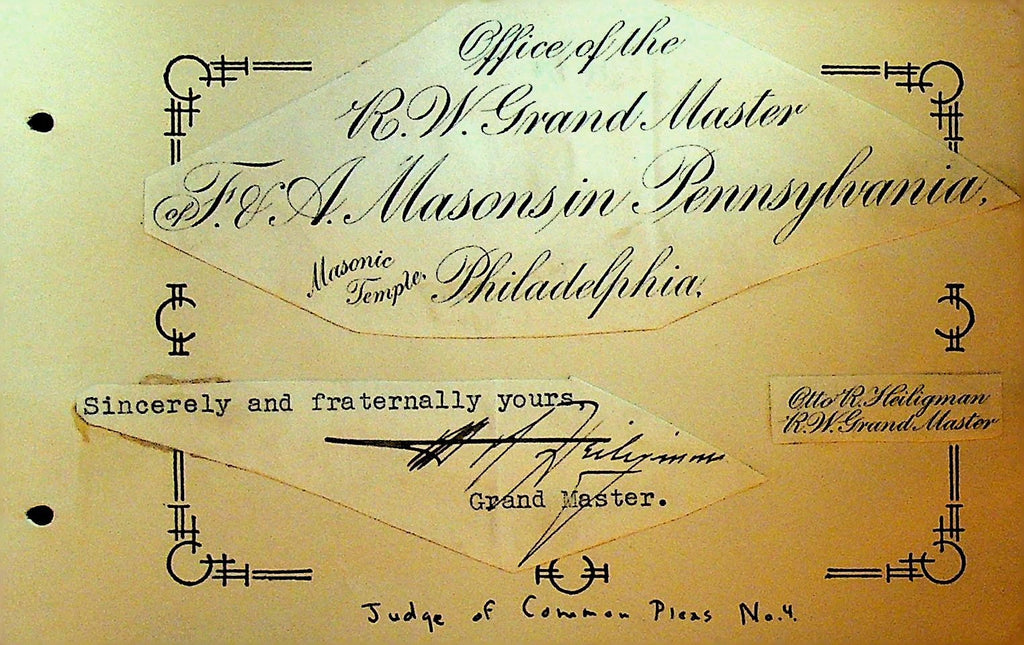 Office of the
R.W. Grand Master
of F. & A. Masons, in Pennsylvania,
Masonic
Temple, Philadelphia,
Sincerely and fraternally yours,
Otto R. Heiligman
R.W. Grand Master
Heiligman
Grand Master.
Judge of Common Pleas No. 4.